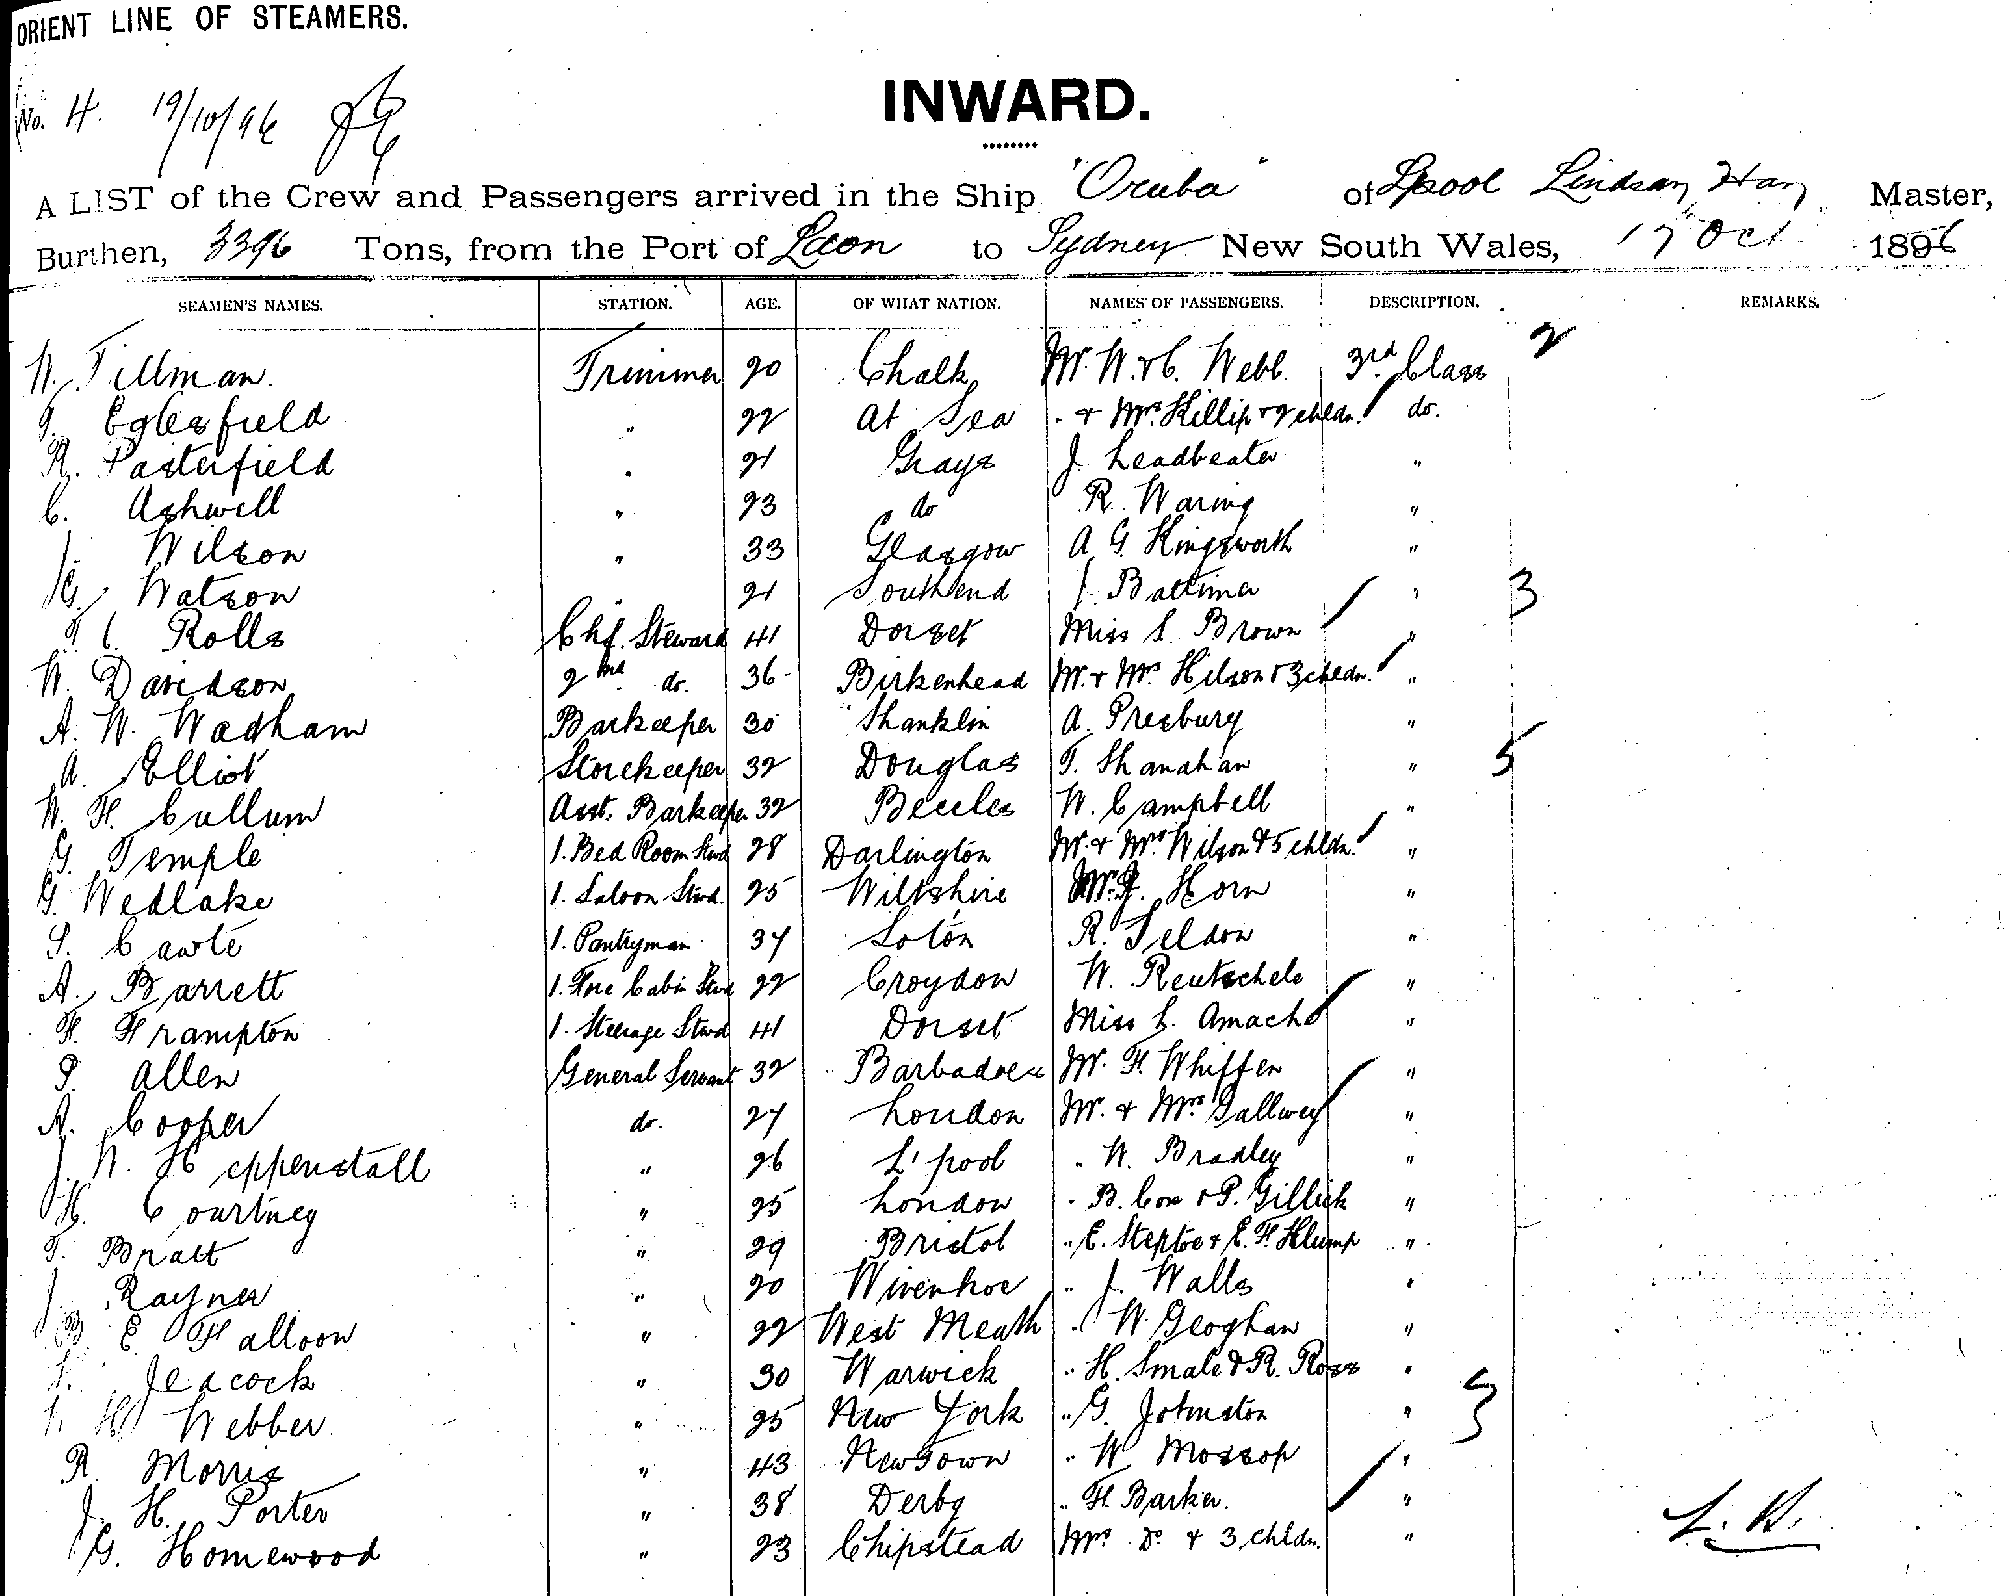 ORIENT LINE OF STEAMERS.
No. 4. 19/10/96
INWARD.
A LIST of the Crew and Passengers arrived in the Ship "Oruba" of Lpool Lindsay Master,
Burthen, 3396 Tons, from the Port of Ldon to Sydney New South Wales, 17 Oct 1896
SEAMEN'S NAMES. STATION. AGE. OF WHAT NATION. NAMES OF PASSENGERS. DESCRIPTION. REMARKS.
W. Tillman. Trimmer 20 Chalk Mr. W. & C. Webb. 3rd Class 2
T. Eglesfield " 22 At Sea " & Mrs Killip & 2 chldn. do.
R. Pasterfield " 21 Grays J. Leadbeater "
C. Ashwell " 23 do R. Waring "
J. Wilson " 33 Glasgow A. G. Kingsworth "
G. Watson " 21 Southend J. Battimer " 3
Rolls Chf. Steward 41 Dorset Miss S. Brown "
W. Davidson 2nd do. 36 Birkenhead Mr. & Mrs. Hilson & 3 chldn. "
A. W. Wadham Barkeeper 30 Shanklin A. Presbury "
A. Elliot Storekeeper 32 Douglas T. Shanahan " 5
W. H. Cullum Asst. Barkeeper 32 Beccles W. Campbell "
G. Temple 1. Bed Room Stwd 28 Darlington Mr. & Mrs Wilson & 5 chldn. "
G. Wedlake 1. Saloon Stwd. 25 Wiltshire Mr. J. Horn "
S. Cawte 1. Pantryman 37 Soton R. Seldon "
A. Barrett 1. Fore Cabin Stwd 22 Croydon W. Reutschele "
F. Frampton 1. Steerage Stwd 41 Dorset Miss L. Amacho "
P. Allen General Servant 32 Barbadoes Mr. F. Whiffen "
A. Cooper do. 27 London Mr. & Mrs Gallwey "
J. W. Heppenstall " 26 L'pool " W. Bradley "
H. Courtney " 25 London " B. Cox & P. Gillick "
T. Bratt " 29 Bristol " E. Steptoe & E. F. Klump "
J. Rayner " 20 Wivenhoe " J. Walls "
B. E. Falloon " 22 West Meath " W. Geoghan "
Jeacock " 30 Warwick " H. Smale & R. Ross "
H. Webber " 25 New York " G. Johnston " 3
R. Morris " 43 Newtown " W. Mossop "
J. H. Porter " 38 Derby " F. Barker. "
G. Homewood " 23 Chipstead Mrs Do. & 3 chldn. "